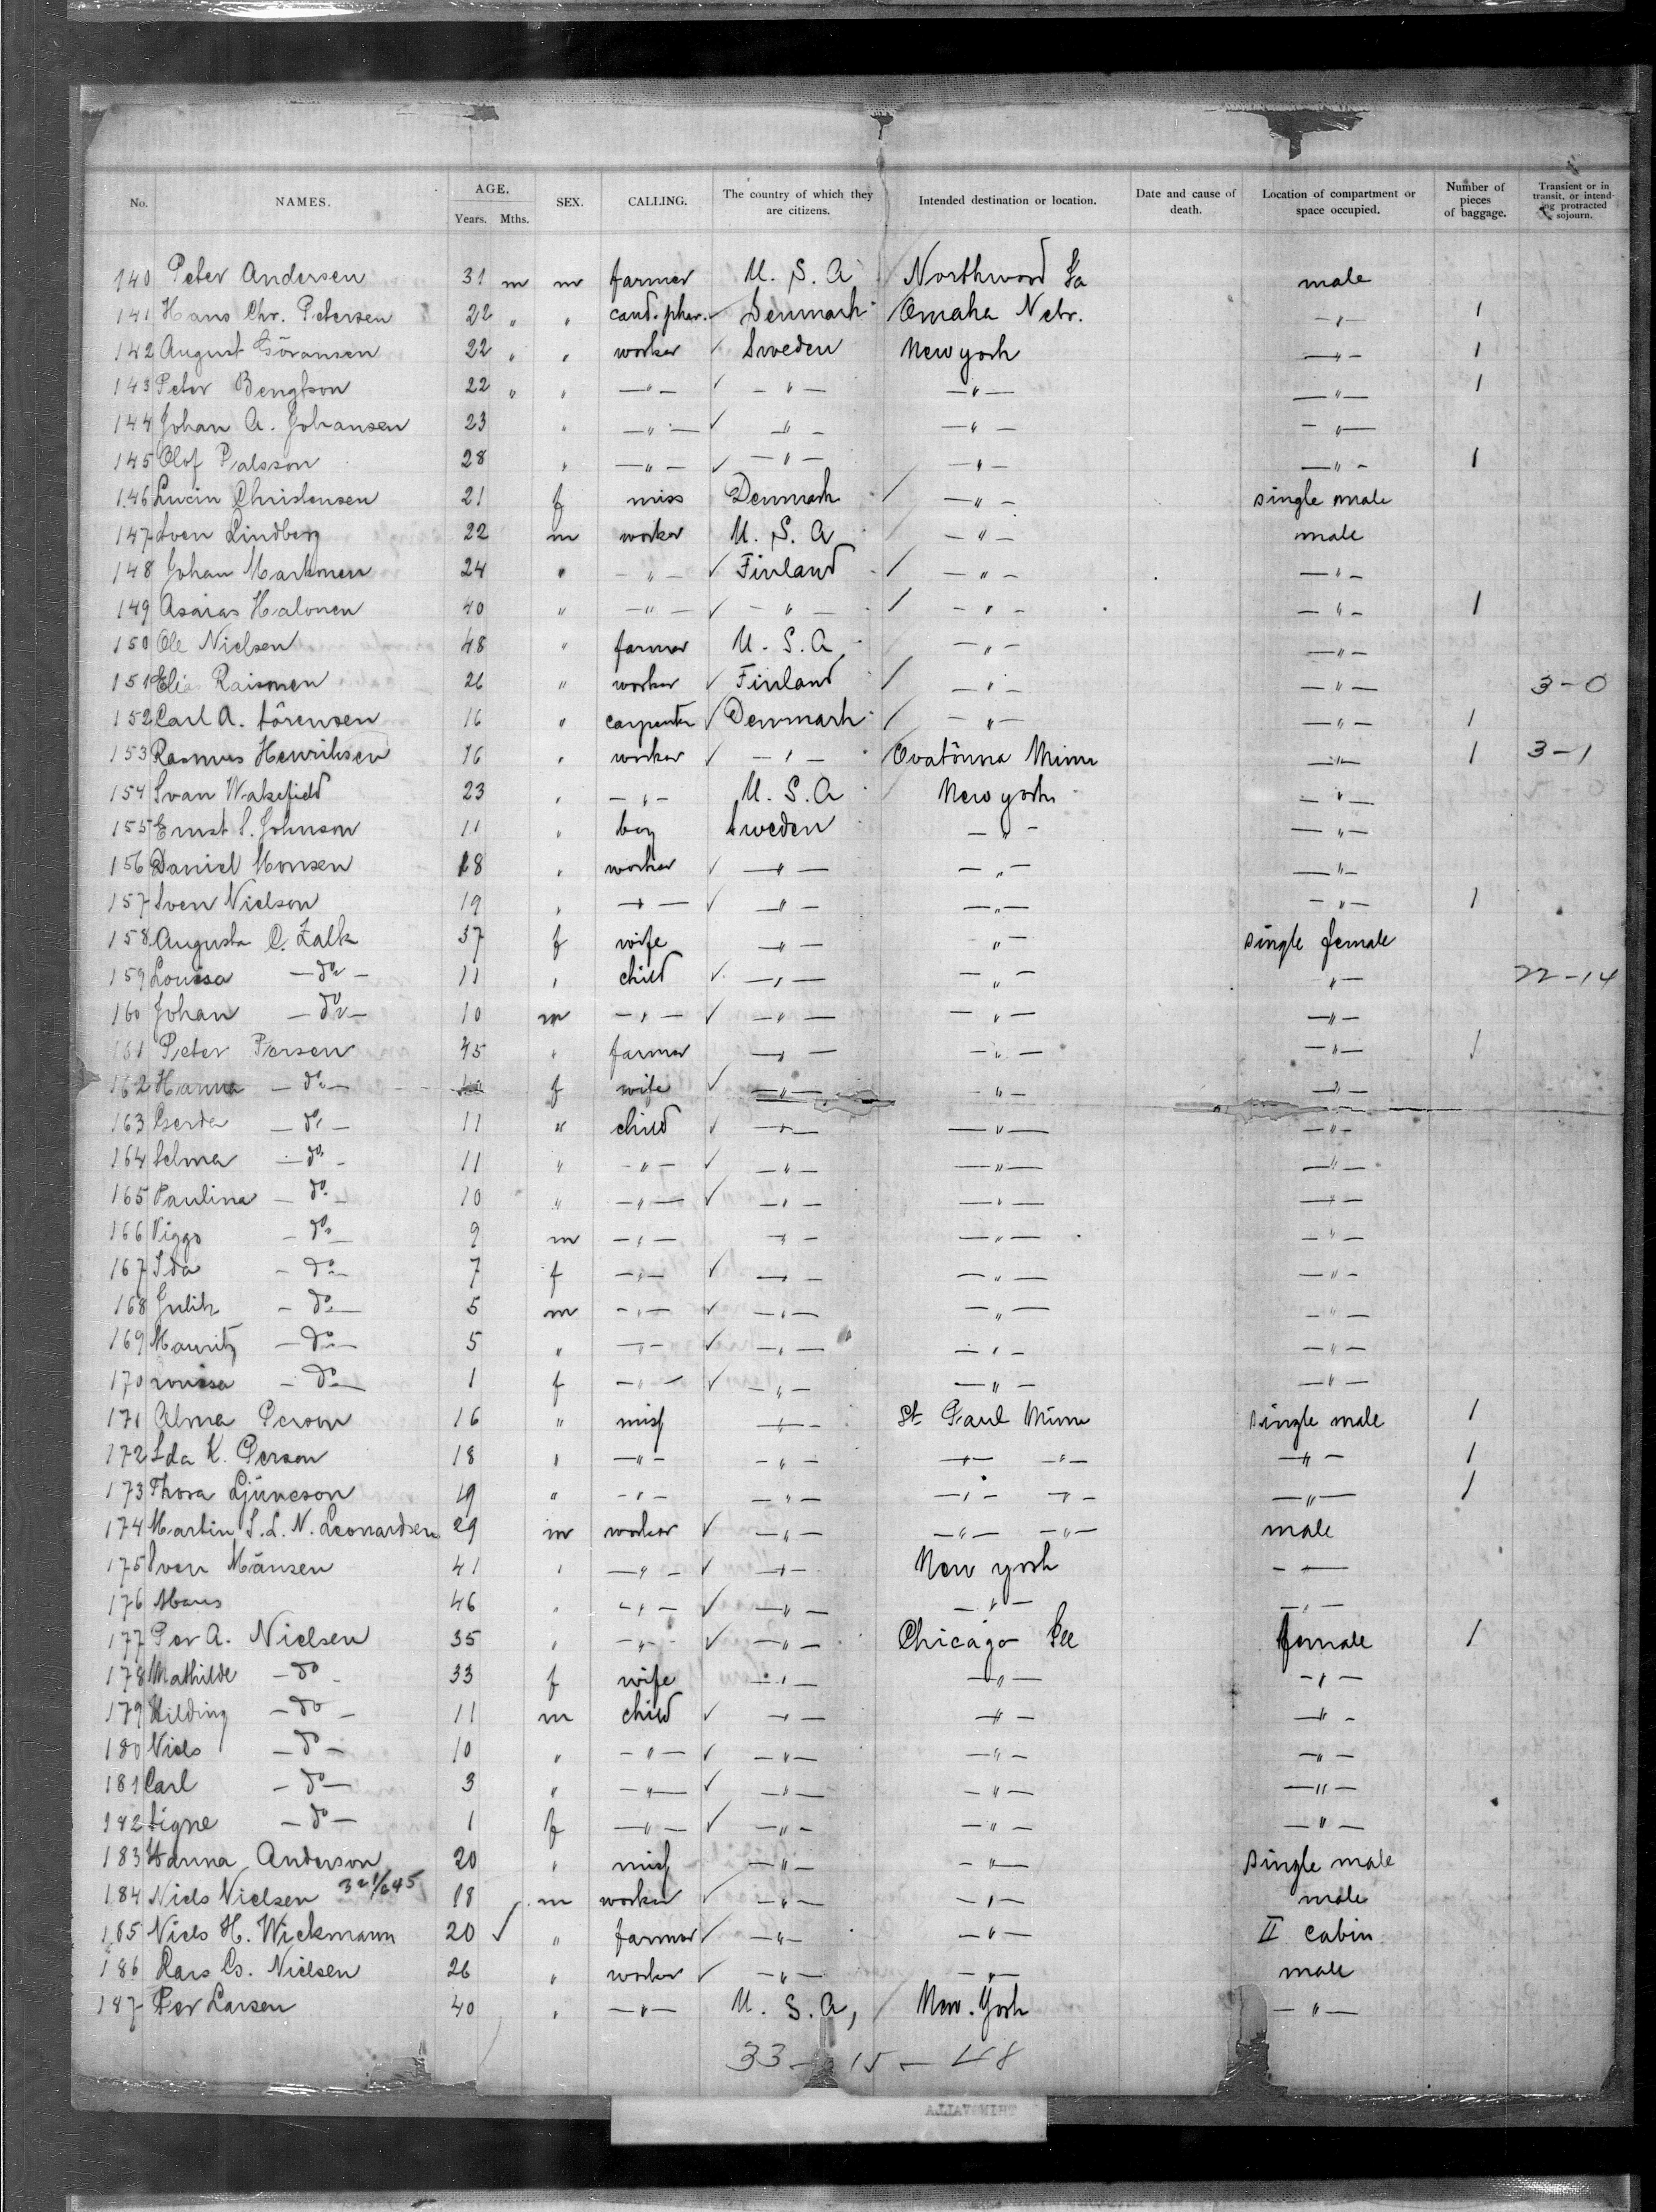 No. NAMES. AGE. Years. Mths. SEX. CALLING. The country of which they are citizens. Intended destination or location. Date and cause of death. Location of compartment or space occupied. Number of pieces of baggage. Transient or in transit, or intending protracted sojourn.
140 Peter Andersen 31 m m farmer U. S. A Northwood Ia male
141 Hans Chr. Petersen 22 " " cand. phar. Denmark Omaha Nebr. -"- 1
142 August Göransen 22 " " worker Sweden New york -"- 1
143 Peter Bengtson 22 " " -"- -"- -"- -"- 1
144 Johan A. Johansen 23 " -"- -"- -"- -"-
145 Olof Palsson 28 " -"- -"- -"- -"- 1
146 Lucin Christensen 21 f miss Denmark -"- single male
147 Sven Lindberg 22 m worker U. S. A -"- male
148 Johan 24 " -"- Finland -"- -"-
149 Asarias Halonen 40 " -"- -"- -"- -"- 1
150 Ole Nielsen 48 " farmer U. S. A -"- -"-
151 Elias Raisonen 26 " worker Finland -"- -"- 3-0
152 Carl A. Sörensen 16 " carpenter Denmark -"- -"- 1
153 Rasmus Henriksen 16 " worker -"- Ovatonna Minn -"- 1 3-1
154 Svan Wakefield 23 " -"- U. S. A New york -"-
155 Ernst S. Johnson 11 " boy Sweden -"- -"-
156 Daniel Monsen 18 " worker -"- -"- -"-
157 Sven Nielson 19 " -"- -"- -"- -"- 1
158 Augusta C. 37 f wife -"- "- single female
159 Louisa -do- 11 " child -"- -"- "- 22-14
160 Johan -do- 10 m -"- -"- -"- -"-
161 Peter Persen 45 " farmer -"- -"- -"- 1
162 Hanna -do- 40 f wife -"- -"- -"-
163 Gerda -do- 11 " child -"- -"- -"-
164 Selma -do- 11 " -"- -"- -"- -"-
165 Paulina -do- 10 " -"- -"- -"- -"-
166 Viggo -do- 9 m -"- -"- -"- -"-
167 Ida -do- 7 f -"- -"- -"- -"-
168 -do- 5 m -"- -"- -"- -"-
169 Mauritz -do- 5 " -"- -"- -"- -"-
170 -do- 1 f -"- -"- -"- -"-
171 Alma Person 16 " miss -"- St Paul Minn single male 1
172 Ida K. Person 18 " -"- -"- -"- -"- -"- 1
173 Thora 19 " -"- -"- -"- -"- -"- 1
174 Martin S. L. N. Leonardsen 29 m worker -"- -"- -"- male
175 Sven Mänsen 41 " -"- -"- New york -"-
176 Mans 46 " -"- -"- -"- -"-
177 Per A. Nielsen 35 " -"- -"- Chicago Ill female 1
178 Mathilde -do- 33 f wife -"- -"- -"-
179 Hilding -do- 11 m child -"- -"- -"-
180 Niels -do- 10 " -"- -"- -"- -"-
181 Carl -do- 3 " -"- -"- -"- -"-
182 Signe -do- 1 f -"- -"- -"- -"-
183 Hanna Anderson 20 " miss -"- -"- single male
184 Niels Nielsen 18 m worker -"- -"- male
185 Niels H. Wickmann 20 " farmer -"- -"- II cabin
186 Lars Cs. Nielsen 26 " worker -"- -"- male
187 Per Larsen 40 " -"- U. S. A, New. York -"-
33 - 15 - 48